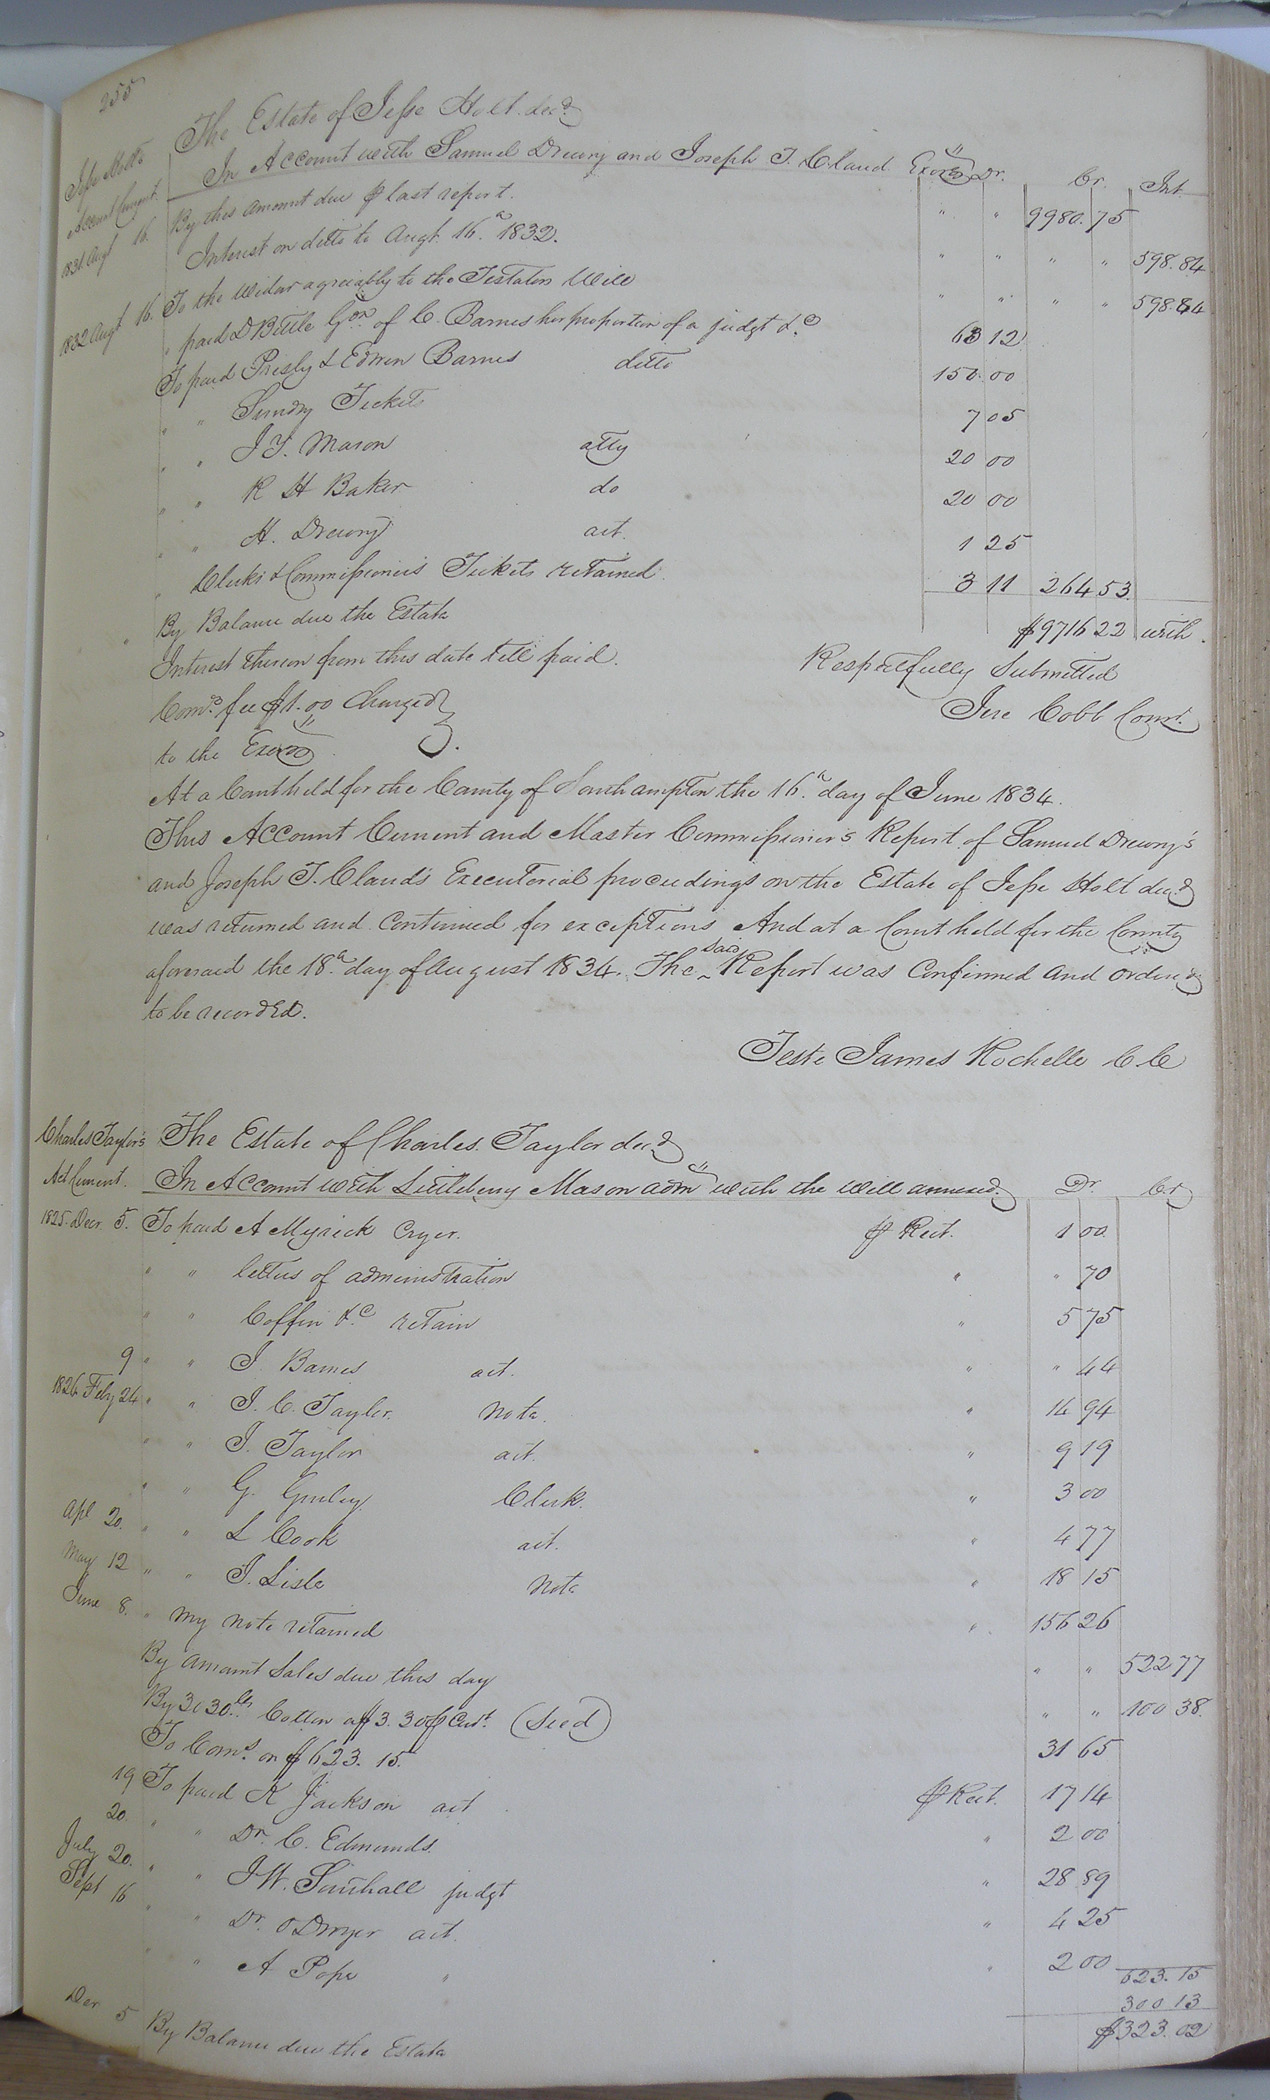 255
Jesse Holts
Account Current.
The Estate of Jesse Holt. decd
In Account with Samuel Drewry and Joseph T. Claud Exors Dr. Cr. Int.
1831 Augt 16. By this amount due ⅌ last report. " " 9980.75
Interest on ditto to Augt 16.th 1832. " " " " 598.84
1832 Augt 16. To the Widow agreeably to the Testators Will " " " " 598.84
" paid D Bittle Gdn of C. Barnes her proportion of a judgt &c 63 12
To paid Presly & Edwin Barnes ditto 150.00
" " Sundry Tickets 7 05
" " J Y. Mason atty 20 00
" " R H Baker do 20 00
" " H. Drewry act. 1 25
" Clerks & Commissioners Tickets retained. 3 11 264 53.
" By Balance due the Estate $9716 22 with
Interest thereon from this date till paid. Respectfully Submitted
Comrs fee $1.00 Charged Jere Cobb Comr.
to the Exors
At a Court held for the County of Southampton the 16.th day of June 1834.
This Account Current and Master Commissioner's Report of Samuel Drewry's
and Joseph T. Claud's Executorial proceedings on the Estate of Jesse Holt decd
was returned and Continued for exceptions And at a Court held for the County
aforesaid the 18.th day of August 1834. The said Report was Confirmed and ordered
to be recorded.
Teste James Rochelle C.C
Charles Taylor's
Act Current.
The Estate of Charles Taylor decd
In Account with Littlebury Mason admr with the Will annexed. Dr. Cr
1825. Decr 5. To paid A Myrick Cryer. ⅌ Rect. 1 00
" " letters of administration " " 70
" " Coffin &c retain " 5 75
9 " " J. Barnes act. " " 44
1826 Feby 24 " " J. C. Taylor. Note. " 14 94
" " J. Taylor act. " 9 19
" " G. Gurley. Clerk. " 3 00
Apl 20. " " L Cook act. " 4 77
May 12 " " J. Lisle Note " 18 15
June 8. " my note retained " 156 26
By amount Sales due this day " " 522 77
By 3030.lbs Cotton a $3.30 ⅌ Cwt. (Seed) " " 100 38.
To Comrs on $623.15. 31 65
19 To paid K Jackson act ⅌ Rect. 17 14
20. " " Dr. C. Edmunds. " 2 00
July 20. " " J W. Southall judgt " 28 89
Sept 16 " " Dr. ODwyer act. " 4 25
" " A Pope " " 2 00 623.15
300 13
Der 5 By Balance due the Estate $323.02